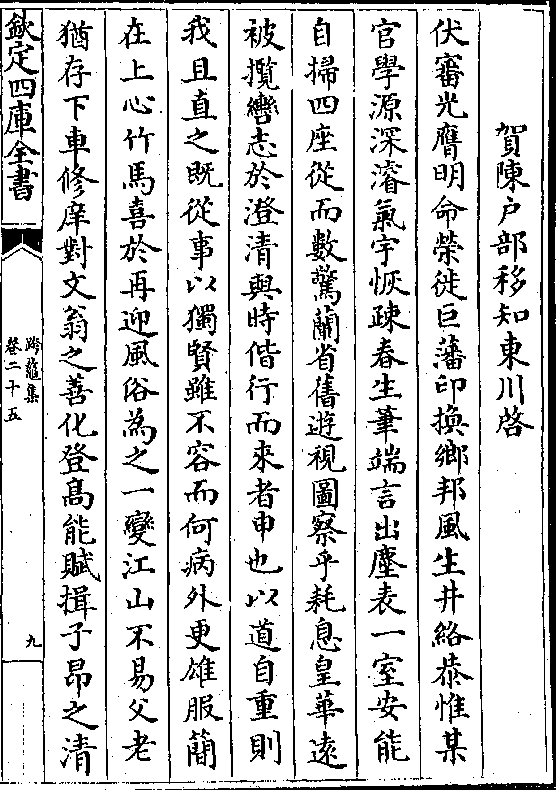 賀陳户部移知東川啓
伏審光膺明命榮徙巨藩印換鄉邦風生井絡恭惟某
官學源深濬氣宇恢疎春生筆端言出塵表一室安能
自掃四座從而數驚蘭省舊遊視圖察乎耗息皇華遠
被攬轡志於澄清與時偕行而來者申也以道自重則
我且直之既從事以獨賢雖不容而何病外更雄服簡
在上心竹馬喜於再迎風俗為之一變江山不易父老
猶存下車修庠對文翁之善化登髙能賦揖子昂之清
欽定四庫全書
跨鼇集
卷二十五
九